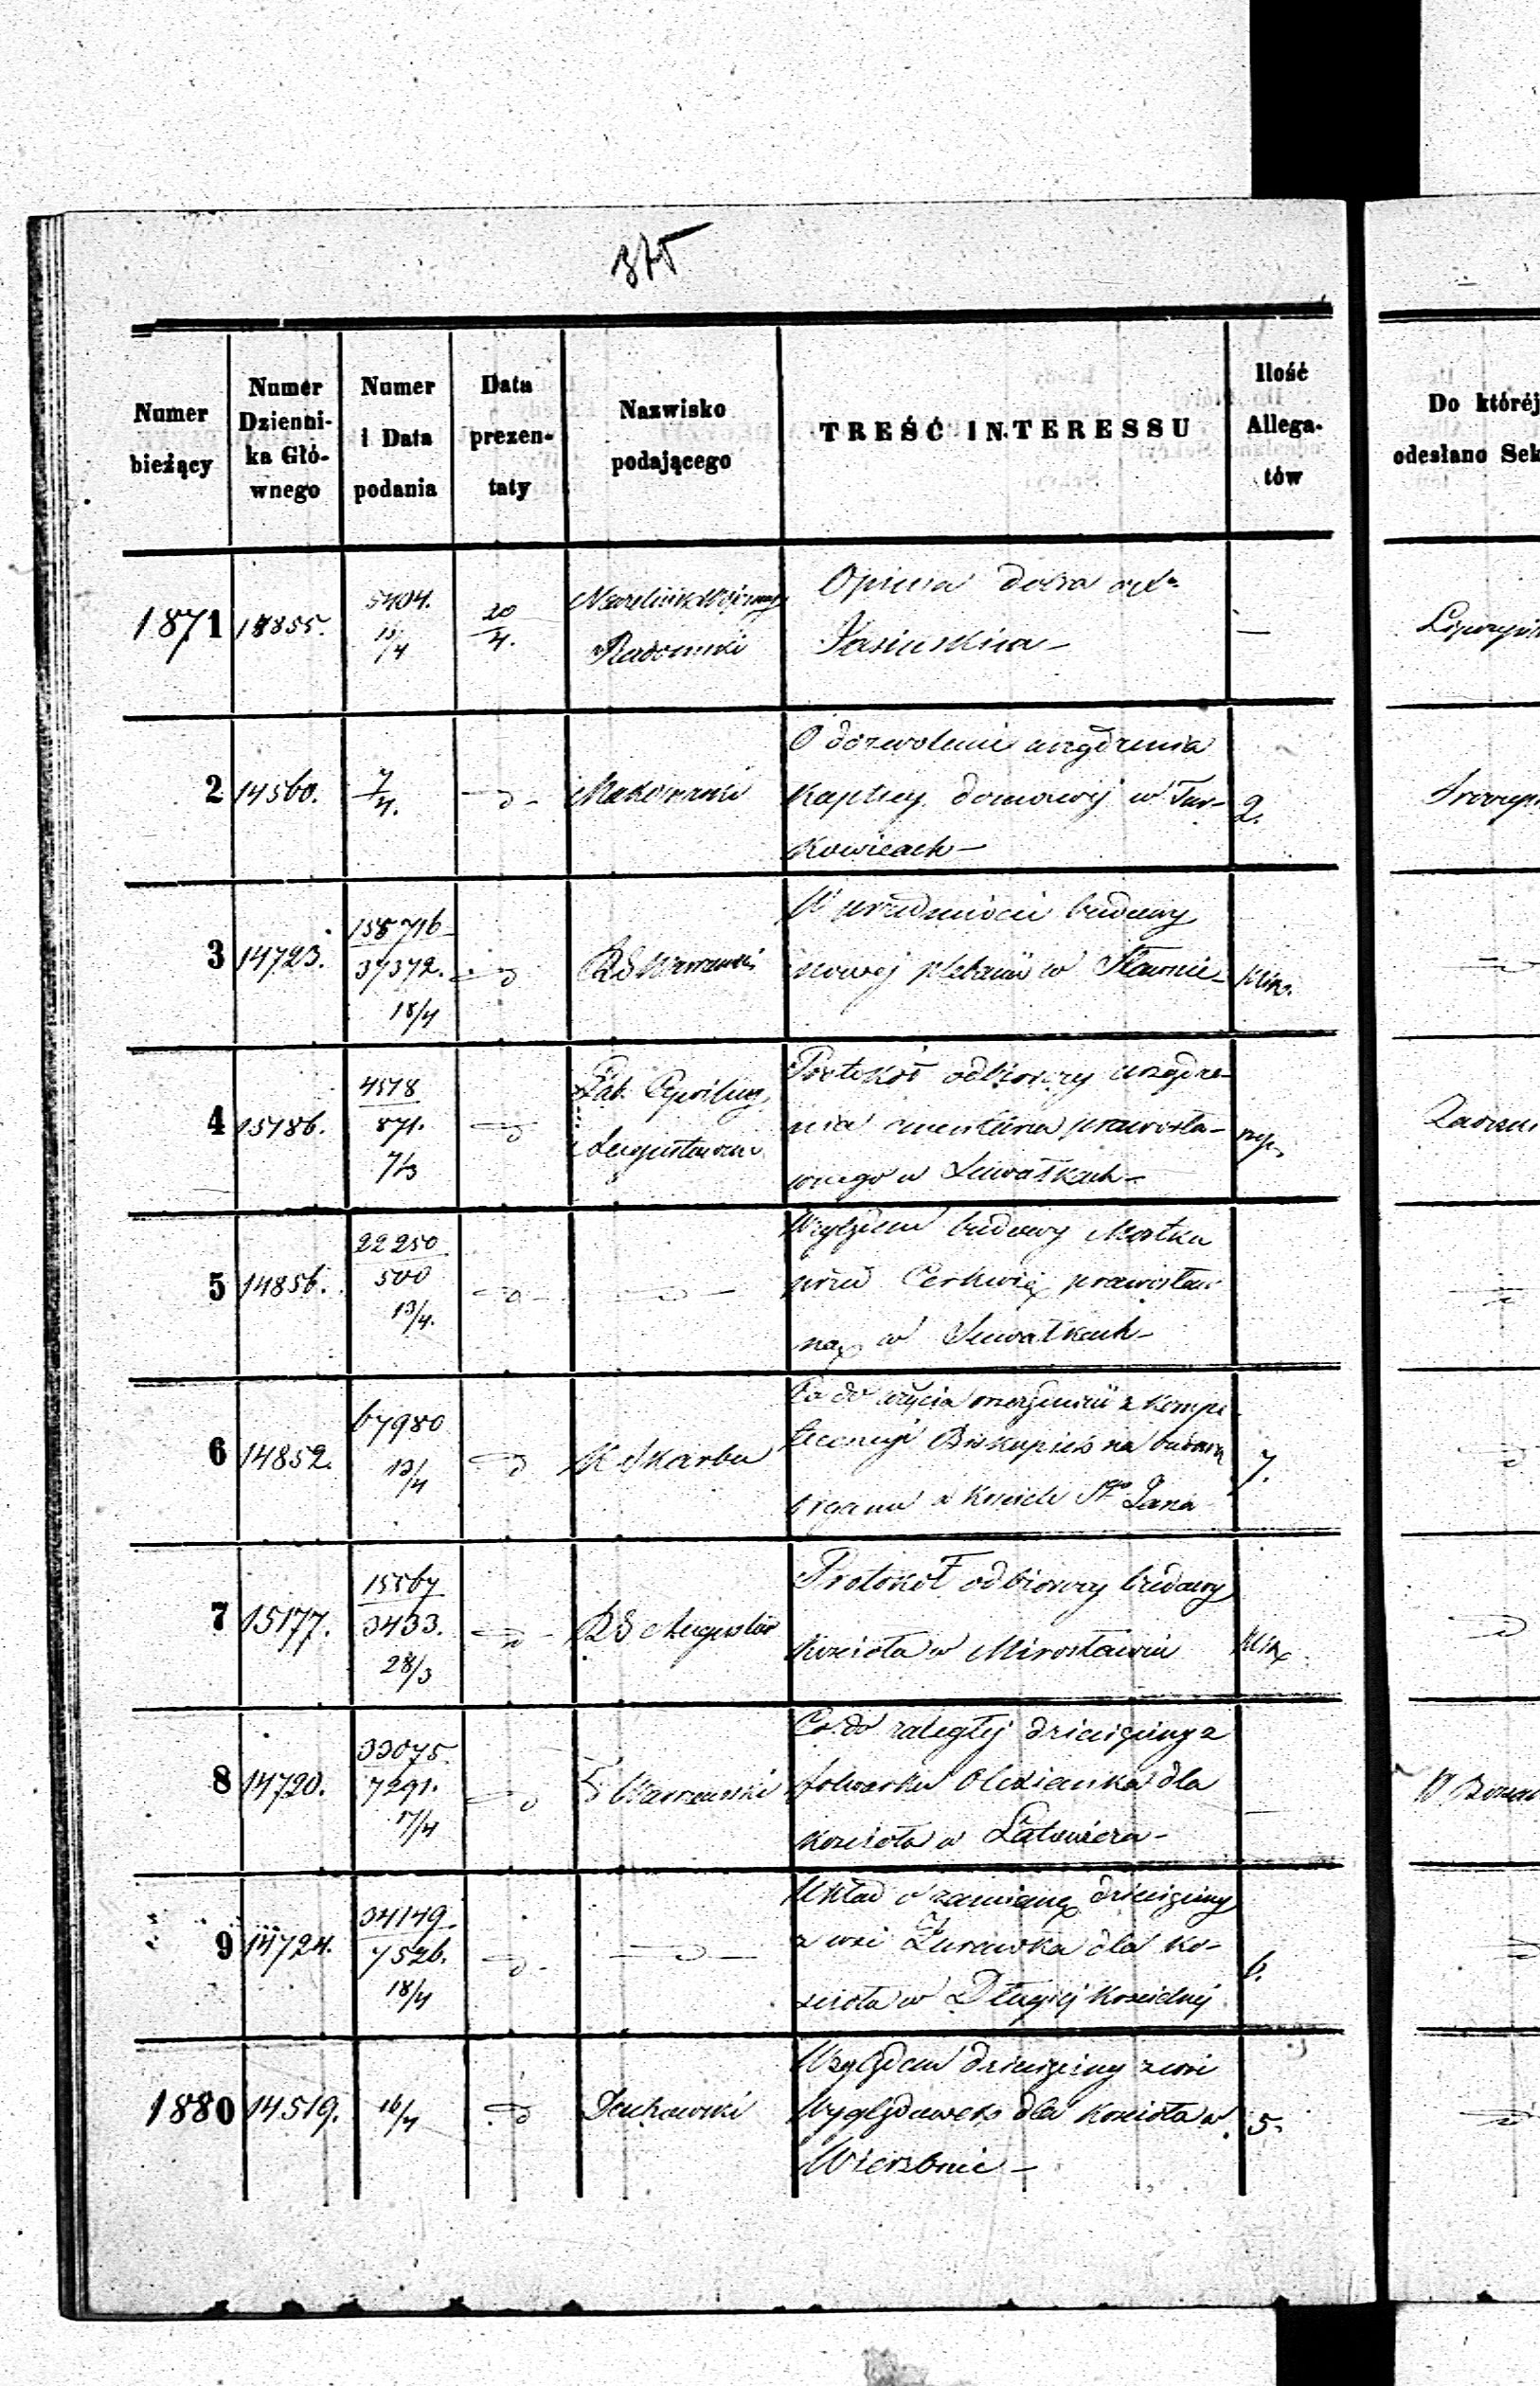 375
Numer bieżący
Numer Dzienni-ka Głó-wnego
Numer i Data podania
Data prezen-taty
Nazwisko podającego
TREŚĆ INTERESSU
Ilość Allega-tów
Do któréj odesłano Sek
1871 14855. 5404. 15/4 20/4. Radomski
Opinia dobra
—
2 14560. 7/4. Makowski
O dozwolenie urządzenia
Kaplicy domowej w Tur-
kowicach— 2.
3 14723. 155716 37372. 18/4 RG Warszawski
W przedmiocie budowy
nowej plebanii w Sławnie—
4 15186. 4578 871. 7/3 Augustowski
Protokół odbiorczy urządze-
nia cmentarza prawosła-
wnego w Suwałkach—
5 14856. 22250 500 13/4.
Względem budowy Mostku
przed Cerkwią prawosław
ną w Suwałkach—
6 14852. 67980 13/4 K Skarbu
Co do użycia z kompe
tencyi Biskupiej na budowę
organu w Kościele Sgo Jana 7.
7 15177. 15567 3433. 28/3 RG Augustow
Protokół odbiorczy budowy
Kościoła w Mirosławiu
8 14720. 33075. 7291. 17/4 Warszawski
Co do zaległej dziesięciny z
folwarku Olexianka dla
Kościoła w Latowiczu— —
9 14724. 34149. 7526. 18/4
Układ o zamianę dziesięciny
z wsi Żurawka dla Ko-
ścioła w Długiej Kościelnej 6.
1880 14519. 16/4
Względem dziesięciny z wsi
dla Kościoła w
Wierzbnie— 5.